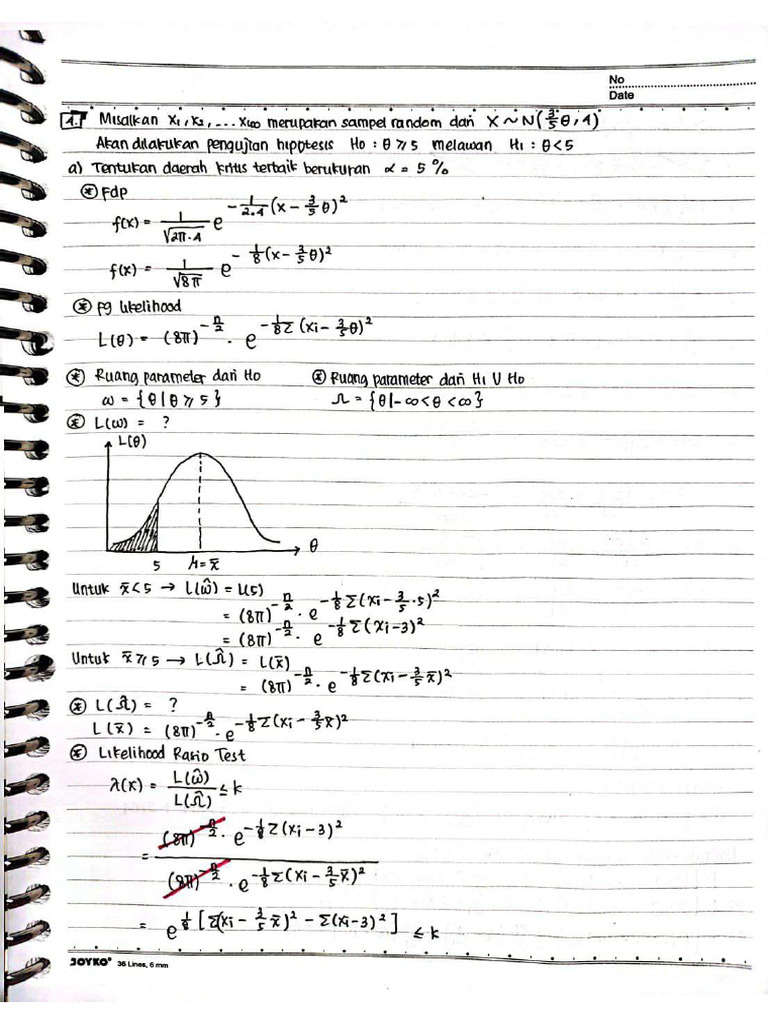 No
Date
1. Misalkan X₁, X₂, ... X₁₀₀ merupakan sampel random dari X ~ N(3/5 θ, 4)
Akan dilakukan pengujian hipotesis H₀ : θ ≥ 5 melawan H₁ : θ < 5
a) Tentukan daerah kritis terbaik berukuran α = 5 %
* Fdp
f(x) = 1/√(2π·4) e^(-1/(2·4) (x - 3/5 θ)²)
f(x) = 1/√(8π) e^(-1/8 (x - 3/5 θ)²)
* Fg likelihood
L(θ) = (8π)^(-n/2) · e^(-1/8 Σ (xi - 3/5 θ)²)
* Ruang parameter dari H₀ * Ruang parameter dari H₁ ∪ H₀
ω = {θ | θ ≥ 5} Ω = {θ | -∞ < θ < ∞}
* L(ω) = ?
L(θ)
θ
5 μ = x̄
Untuk x̄ < 5 → L(ω̂) = L(5)
= (8π)^(-n/2) · e^(-1/8 Σ (xi - 3/5 · 5)²)
= (8π)^(-n/2) · e^(-1/8 Σ (xi - 3)²)
Untuk x̄ ≥ 5 → L(Ω̂) = L(x̄)
= (8π)^(-n/2) · e^(-1/8 Σ (xi - 3/5 x̄)²)
* L(Ω̂) = ?
L(x̄) = (8π)^(-n/2) · e^(-1/8 Σ (xi - 3/5 x̄)²)
* Likelihood Ratio Test
λ(x) = L(ω̂)/L(Ω̂) ≤ k
= (8π)^(-n/2) · e^(-1/8 Σ (xi - 3)²)
(8π)^(-n/2) · e^(-1/8 Σ (xi - 3/5 x̄)²)
= e^(1/8 [Σ(xi - 3/5 x̄)² - Σ(xi - 3)²]) ≤ k
JOYKO® 36 Lines, 6 mm